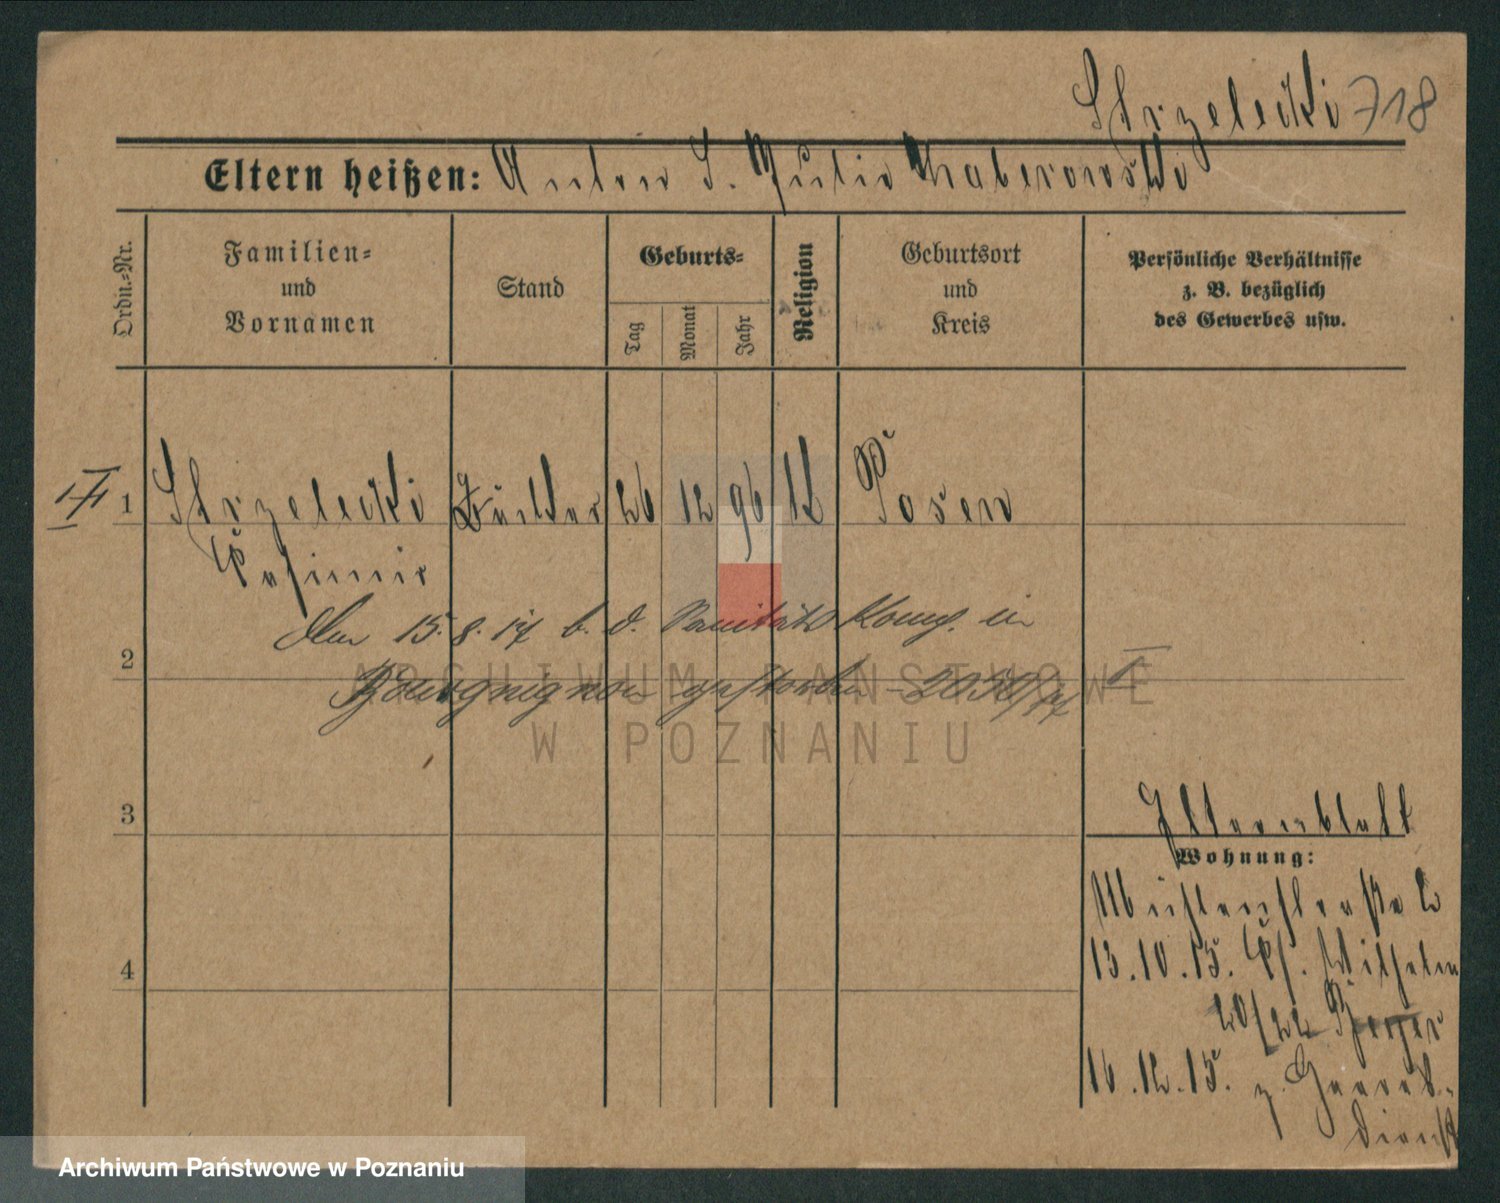 Strzelecki 718
Eltern heißen: Anton S. Julie Chaberowski
Ordn.-Nr.
Familien- und Vornamen
Stand
Geburts-
Tag
Monat
Jahr
Religion
Geburtsort und Kreis
Persönliche Verhältnisse z. B. bezüglich des Gewerbes usw.
1 Strzelecki 26 12 96 k Posen
Kasimir
Am 15.8.17 b. d. Sanitäts Komp. in
2
Bourguignon gestorben 2050/17
ARCHIWUM PAŃSTWOWE
W POZNANIU
3
Elternblatt
Wohnung:
Mühlenstraße
13.10.15. Wilhelm
4
20/22 Berger
16.12.15. z. Heeres-
dienst
Archiwum Państwowe w Poznaniu